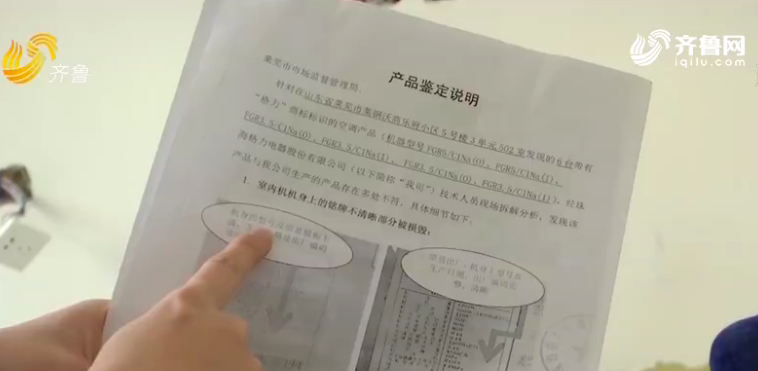 齐鲁
齐鲁网
iqilu.com
产品鉴定说明
莱芜市市场监督管理局:
针对在山东省莱芜市莱钢沃商乐府小区5号楼3单元502室发现的6台带有
“格力”商标标识的空调产品(机器型号FGR5/C1Na(O)、FGR5/C1Na(I)、
FGR3.5/C1Na(O)、FGR3.5/C1Na(I)、FGR3.5/C1Na(O)、FGR3.5/C1Na(I)),经珠
海格力电器股份有限公司(以下简称“我司”)技术人员现场拆解分析,发现该
产品与我公司生产的产品存在多处不符,具体细节如下:
1. 室内机机身上的铭牌不清晰部分被损毁;
机身
编码
机身上型号及
生产日期
编码完
整、清晰